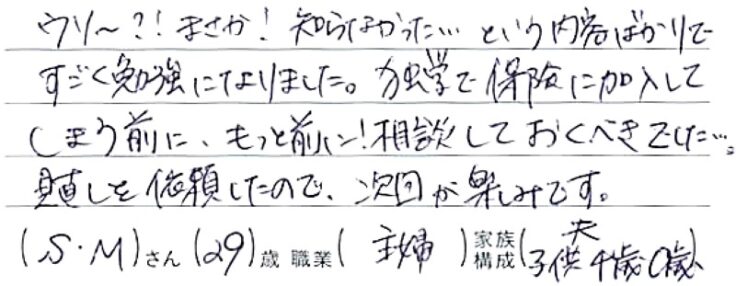 ウソ〜?!まさか!知らなかった…という内容ばかりで
すごく勉強になりました。独学で保険に加入して
しまう前に、もっと前に!相談しておくべきでした…。
見直しを依頼したので、次回が楽しみです。
(S・M)さん(29)歳 職業(主婦)家族構成(夫 子供4歳、0歳)